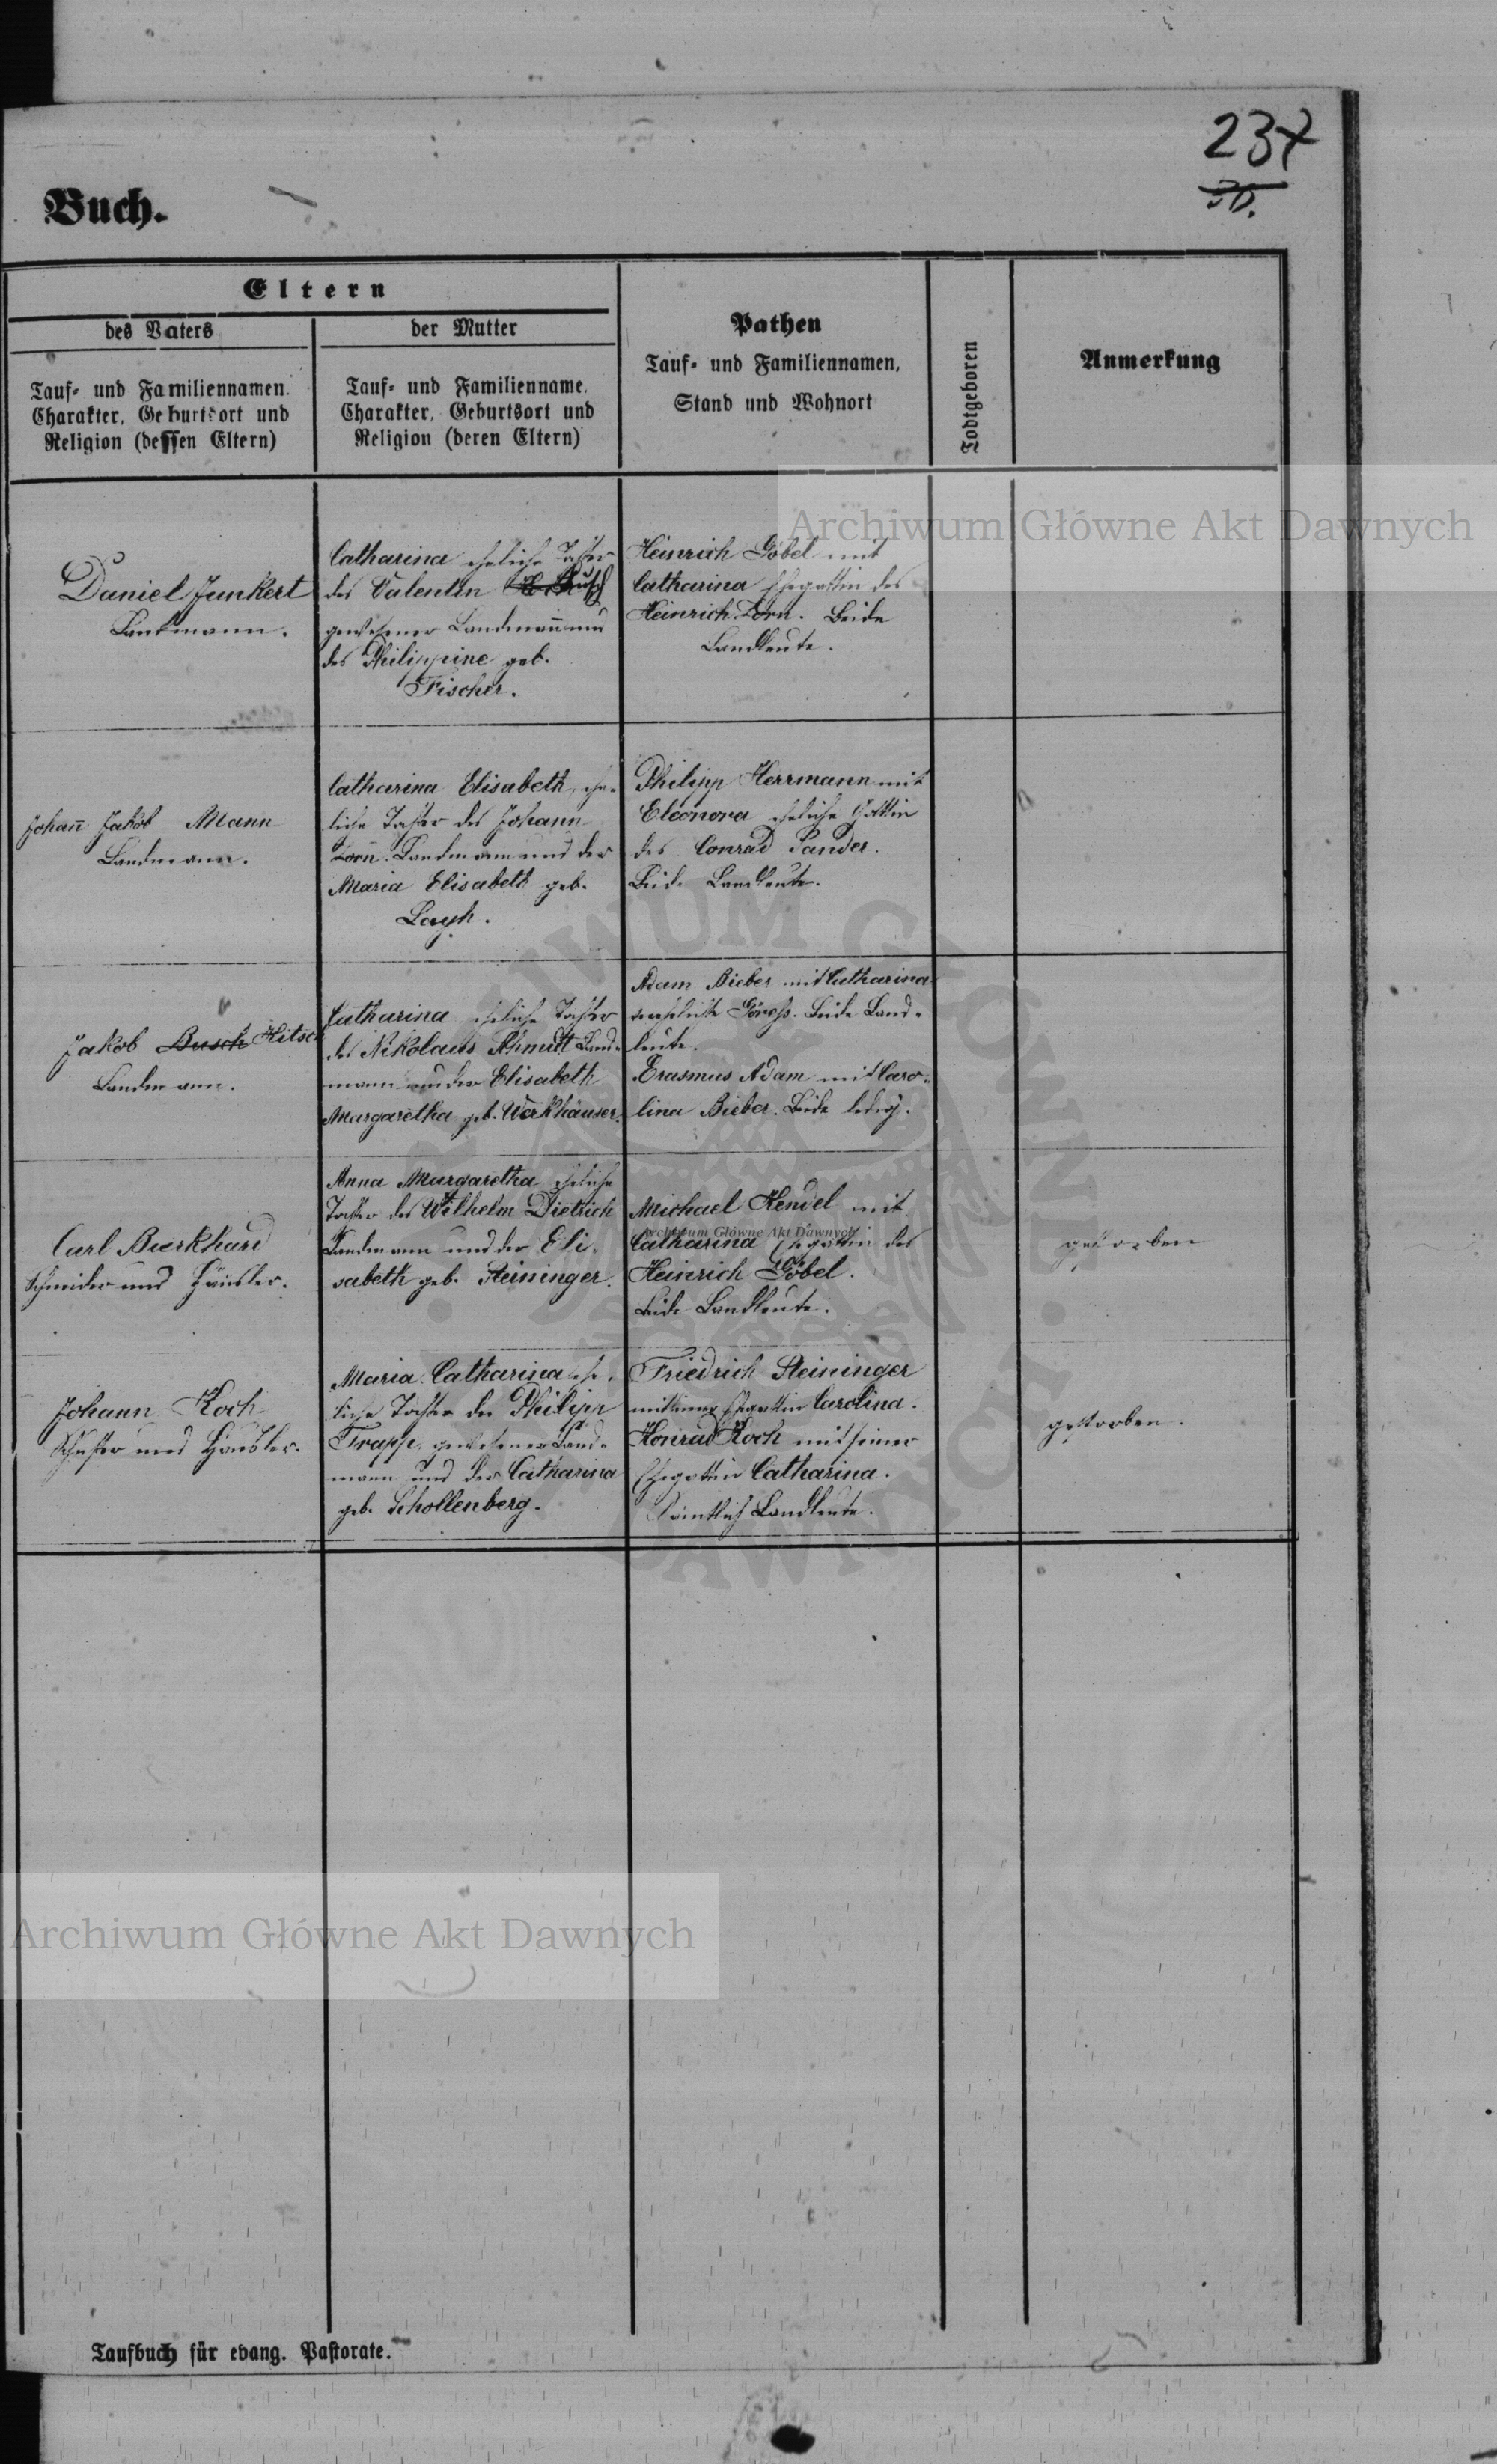 237
36.
Buch.
Eltern
des Vaters
Tauf- und Familiennamen.
Charakter, Geburtsort und
Religion (dessen Eltern)
der Mutter
Tauf- und Familienname.
Charakter, Geburtsort und
Religion (deren Eltern)
Pathen
Tauf- und Familiennamen,
Stand und Wohnort
Todtgeboren
Anmerkung
Archiwum Główne Akt Dawnych
Daniel Junkert
Landmann.
Catharina eheliche Tochter
des Valentin Busch
gewesener Landmann und
der Philippine geb.
Fischer.
Heinrich Göbel mit
Catharina Ehegattin des
Heinrich Zorn. Beide
Landleute.
Johann Jakob Mann
Landmann.
Catharina Elisabeth, ehe-
liche Tochter des Johann
Zorn. Landmann und der
Maria Elisabeth geb.
Philipp Herrmann mit
Eleonora eheliche Gattin
des Conrad Sander.
Beide Landleute.
Jakob Busch Hitsch
Landmann.
Catharina eheliche Tochter
des Nikolaus Schmitt Land-
mann und der Elisabeth
Margaretha geb. Werkhäuser.
Adam Bieber mit Catharina
verehelichte Beide Land-
leute.
Erasmus Adam mit Caro-
lina Bieber. Beide ledig.
Carl Burkhard
Schneider und Häusler.
Anna Margaretha eheliche
Tochter des Wilhelm Dietrich
Landmann und der Eli-
sabeth geb. Steininger.
Michael Hendel mit
Archiwum Główne Akt Dawnych
Catharina Ehegattin des
Heinrich Göbel.
Beide Landleute.
gestorben
Johann Koch
Schuster und Häusler.
Maria Catharina ehe-
liche Tochter des Philipp
Trapp, gewesener Land-
mann und der Catharina
geb. Schollenberg.
Friedrich Steininger
mit seiner Ehegattin Carolina.
Konrad Koch mit seiner
Ehegattin Catharina.
Sämtlich Landleute.
gestorben.
Archiwum Główne Akt Dawnych
Taufbuch für evang. Pastorate.